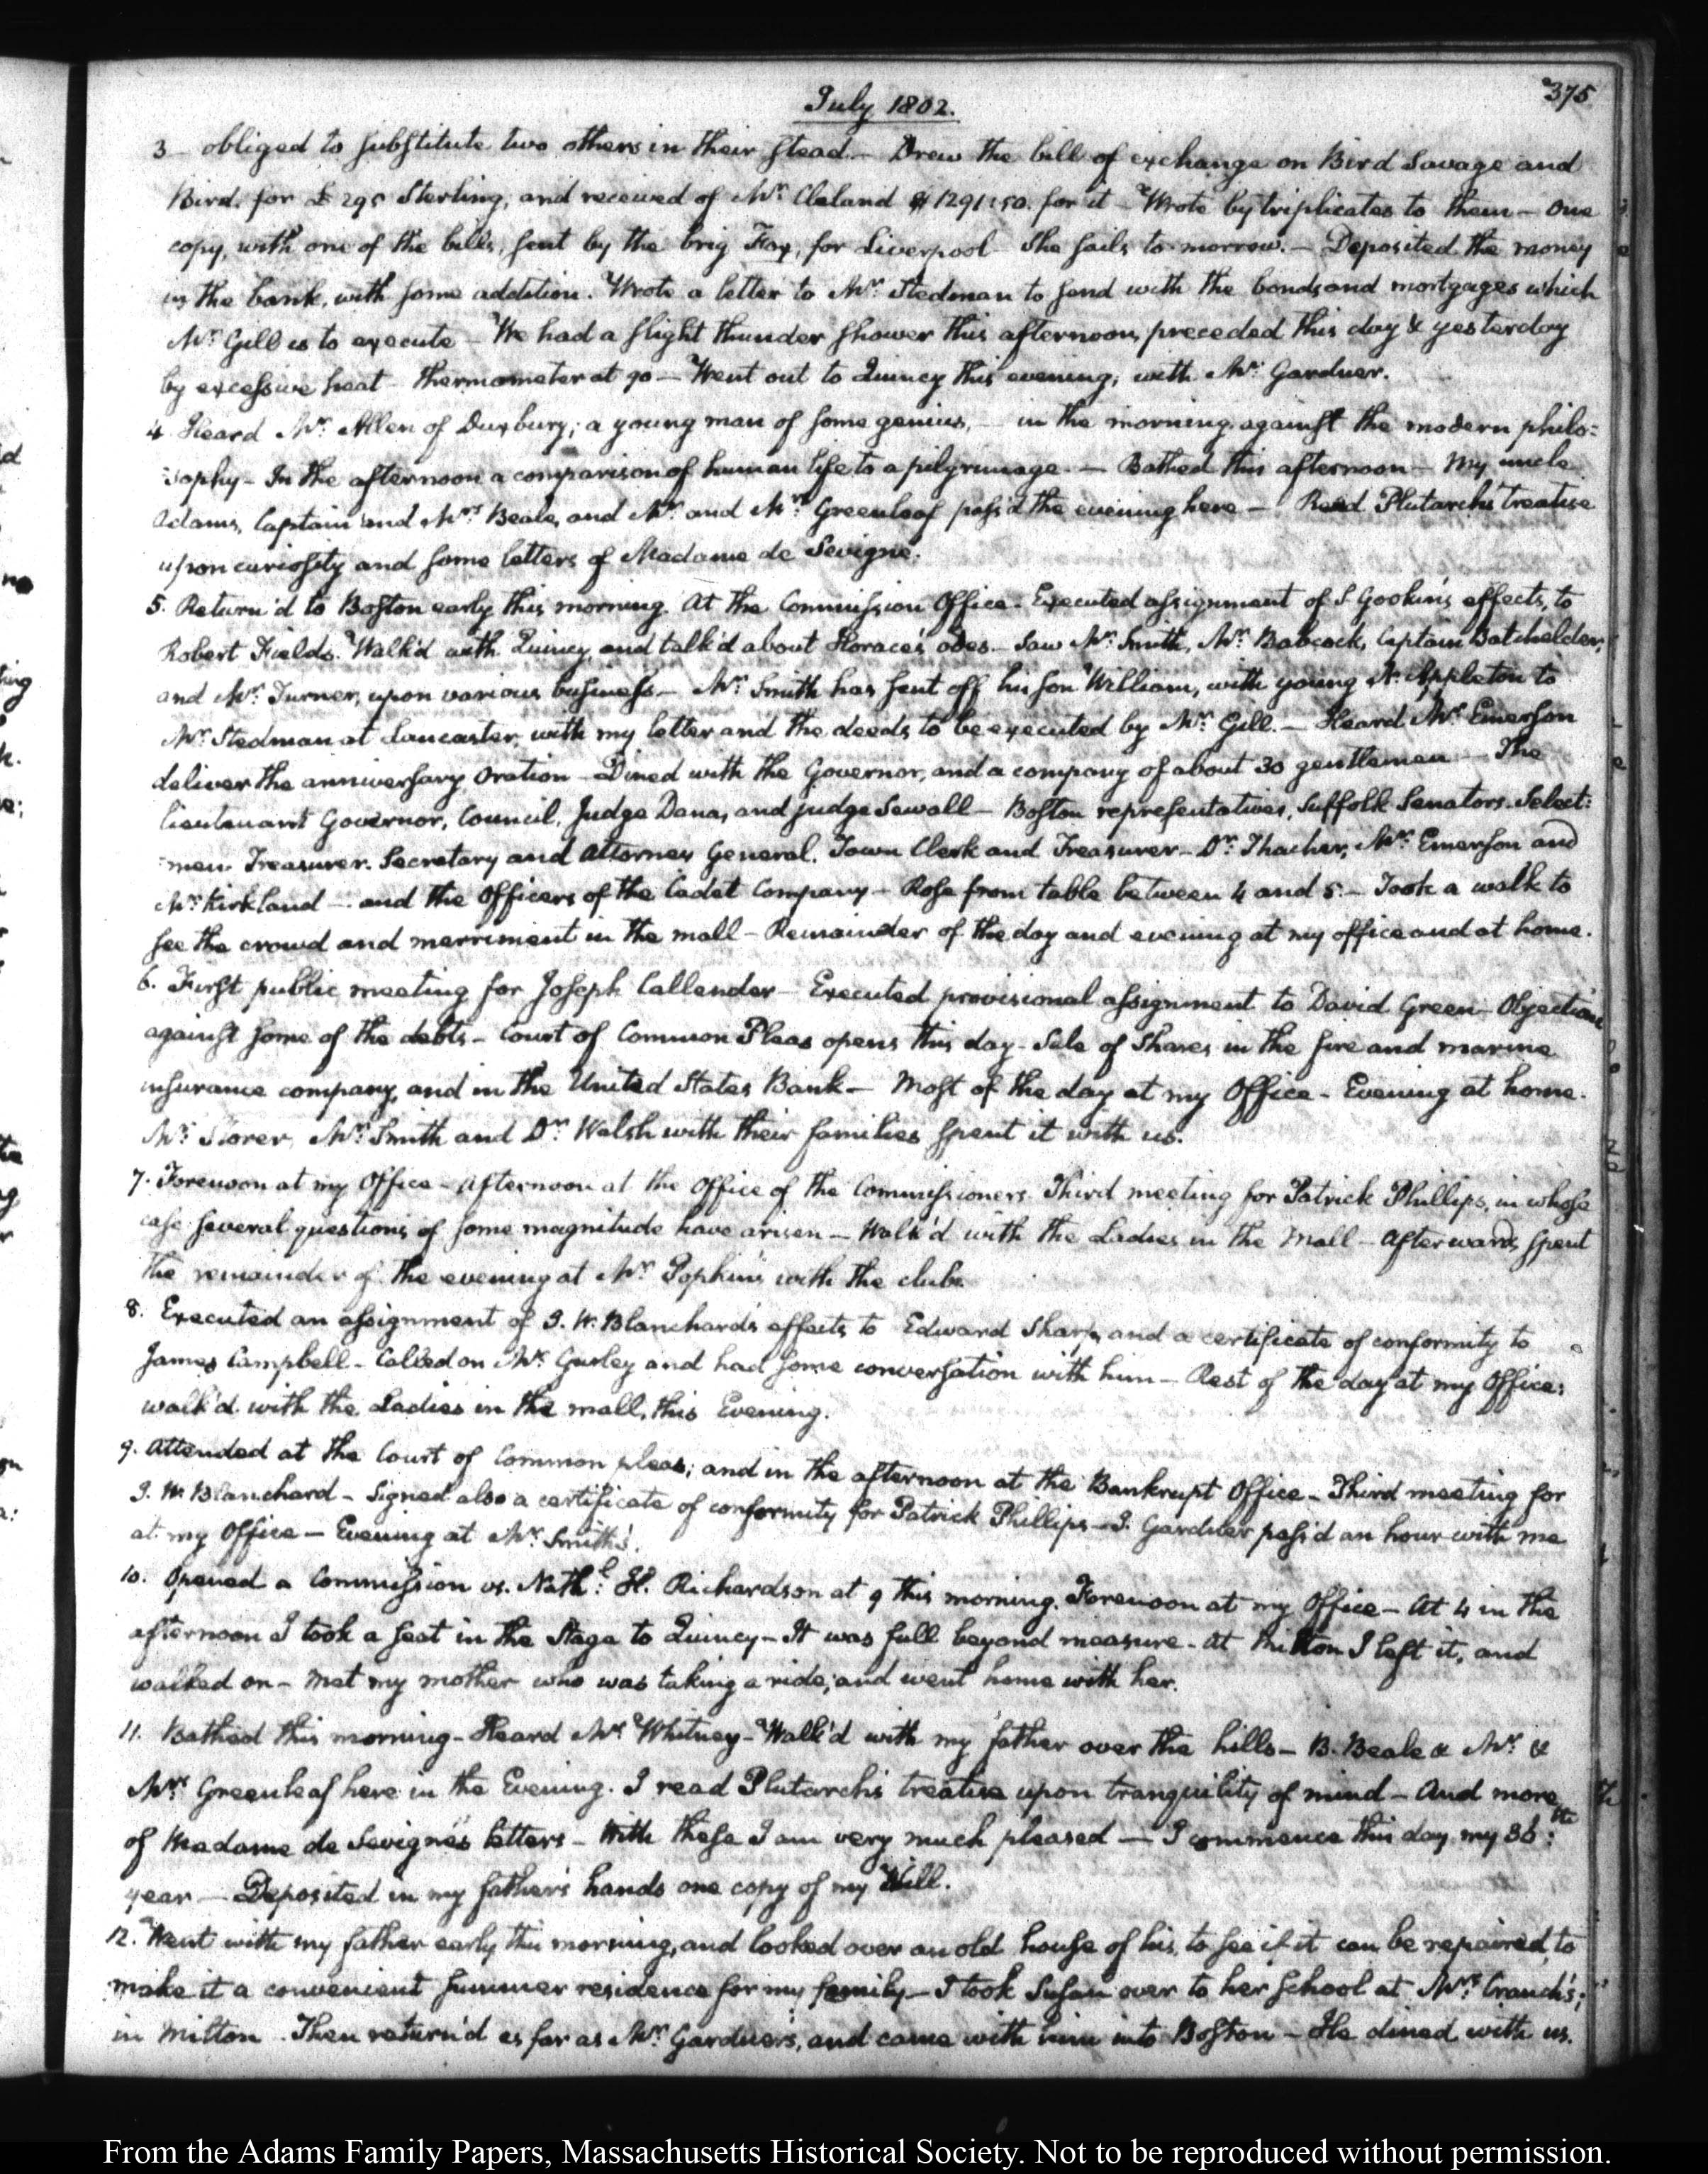 July 1802.
375
3 obliged to substitute two others in their stead.— Drew the bill of exchange on Bird Savage and
Bird. for £ 295 Sterling, and received of Mr. Cleland $1291:50. for it — Wrote by triplicates to them — One
copy, with one of the bills, sent by the brig Fox, for Liverpool She sails to-morrow.— Deposited the money
in the bank, with some addition. Wrote a letter to Mr. Stedman to send with the bonds and mortgages which
Mr. Gill is to execute — We had a slight thunder shower this afternoon, preceded this day & yesterday
by excessive heat — thermometer at 90 — Went out to Quincy this evening, with Mr. Gardner.
4. Heard Mr. Allen of Duxbury; a young man of some genius, — in the morning against the modern philo:
:sophy — In the afternoon a comparison of human life to a pilgrimage. — Bathed this afternoon — My uncle
Adams, Captain and Mrs. Beale, and Mr. and Mrs. Greenleaf pass'd the evening here — Read Plutarchs treatise
upon curiosity and some letters of Madame de Sevigné.
5. Return'd to Boston early this morning. At the Commission Office. Executed assignment of S. Gookin's effects, to
Robert Fields. Walk'd with Quincy, and talk'd about Horace's odes — Saw Mr. Smith, Mr. Babcock, Captain Batchelder,
and Mr. Turner, upon various business — Mr. Smith has sent off his son William, with young Appleton to
Mr. Stedman at Lancaster, with my letter and the deeds to be executed by Mr. Gill. — Heard Mr. Emerson
deliver the anniversary Oration — Dined with the Governor, and a company of about 30 gentlemen — The
lieutenant Governor, Council, Judge Dana, and judge Sewall — Boston representatives, Suffolk Senators. Select:
:men Treasurer. Secretary and Attorney General. Town Clerk and Treasurer — Dr. Thacher, Mr. Emerson and
Mr. Kirkland — and the Officers of the Cadet Company — Rose from table between 4 and 5 — Took a walk to
see the crowd and merriment in the mall — Remainder of the day and evening at my office and at home.
6. First public meeting for Joseph Callender — Executed provisional assignment to David Green — Objections
against some of the debts — Court of Common Pleas opens this day — Sale of Shares in the fire and marine
insurance company, and in the United States Bank — Most of the day at my Office — Evening at home.
Mr. Storer, Mr. Smith and Dr. Welsh with their families spent it with us.
7. Forenoon at my Office — Afternoon at the Office of the Commissioners. Third meeting for Patrick Phillips, in whose
case several questions of some magnitude have arisen — Walk'd with the Ladies in the Mall — Afterwards, spent
the remainder of the evening at Mr. Popkin's with the club.
8. Executed an assignment of J. W. Blanchard's effects to Edward Sharp, and a certificate of conformity to
James Campbell — Called on Mr. Gurley and had some conversation with him — Rest of the day at my Office;
walk'd with the Ladies in the mall, this Evening.
9. Attended at the Court of Common pleas; and in the afternoon at the Bankrupt Office — Third meeting for
J. W. Blanchard — Signed also a certificate of conformity for Patrick Phillips — J. Gardner pass'd an hour with me
at my Office — Evening at Mr. Smith's.
10. Opened a Commission vs. Nathl. H. Richardson at 9 this morning. Forenoon at my Office — At 4 in the
afternoon I took a seat in the Stage to Quincy — It was full beyond measure — At Milton I left it, and
walked on — Met my mother who was taking a ride; and went home with her.
11. Bathed this morning — Heard Mr. Whitney — Walk'd with my father over the hills — B. Beale & Mr. &
Mrs. Greenleaf here in the Evening. I read Plutarch's treatise upon tranquility of mind — And more
of Madame de Sevigné's letters — With these I am very much pleased — I commence this day my 36:th
year — Deposited in my father's hands one copy of my Will.
12. Went with my father early this morning, and looked over an old house of his, to see if it can be repaired, to
make it a convenient summer residence for my family — I took Susan over to her school at Mrs. Cranch's;
in Milton. Then return'd as far as Mr. Gardner's, and came with him into Boston — He dined with us.
From the Adams Family Papers, Massachusetts Historical Society. Not to be reproduced without permission.